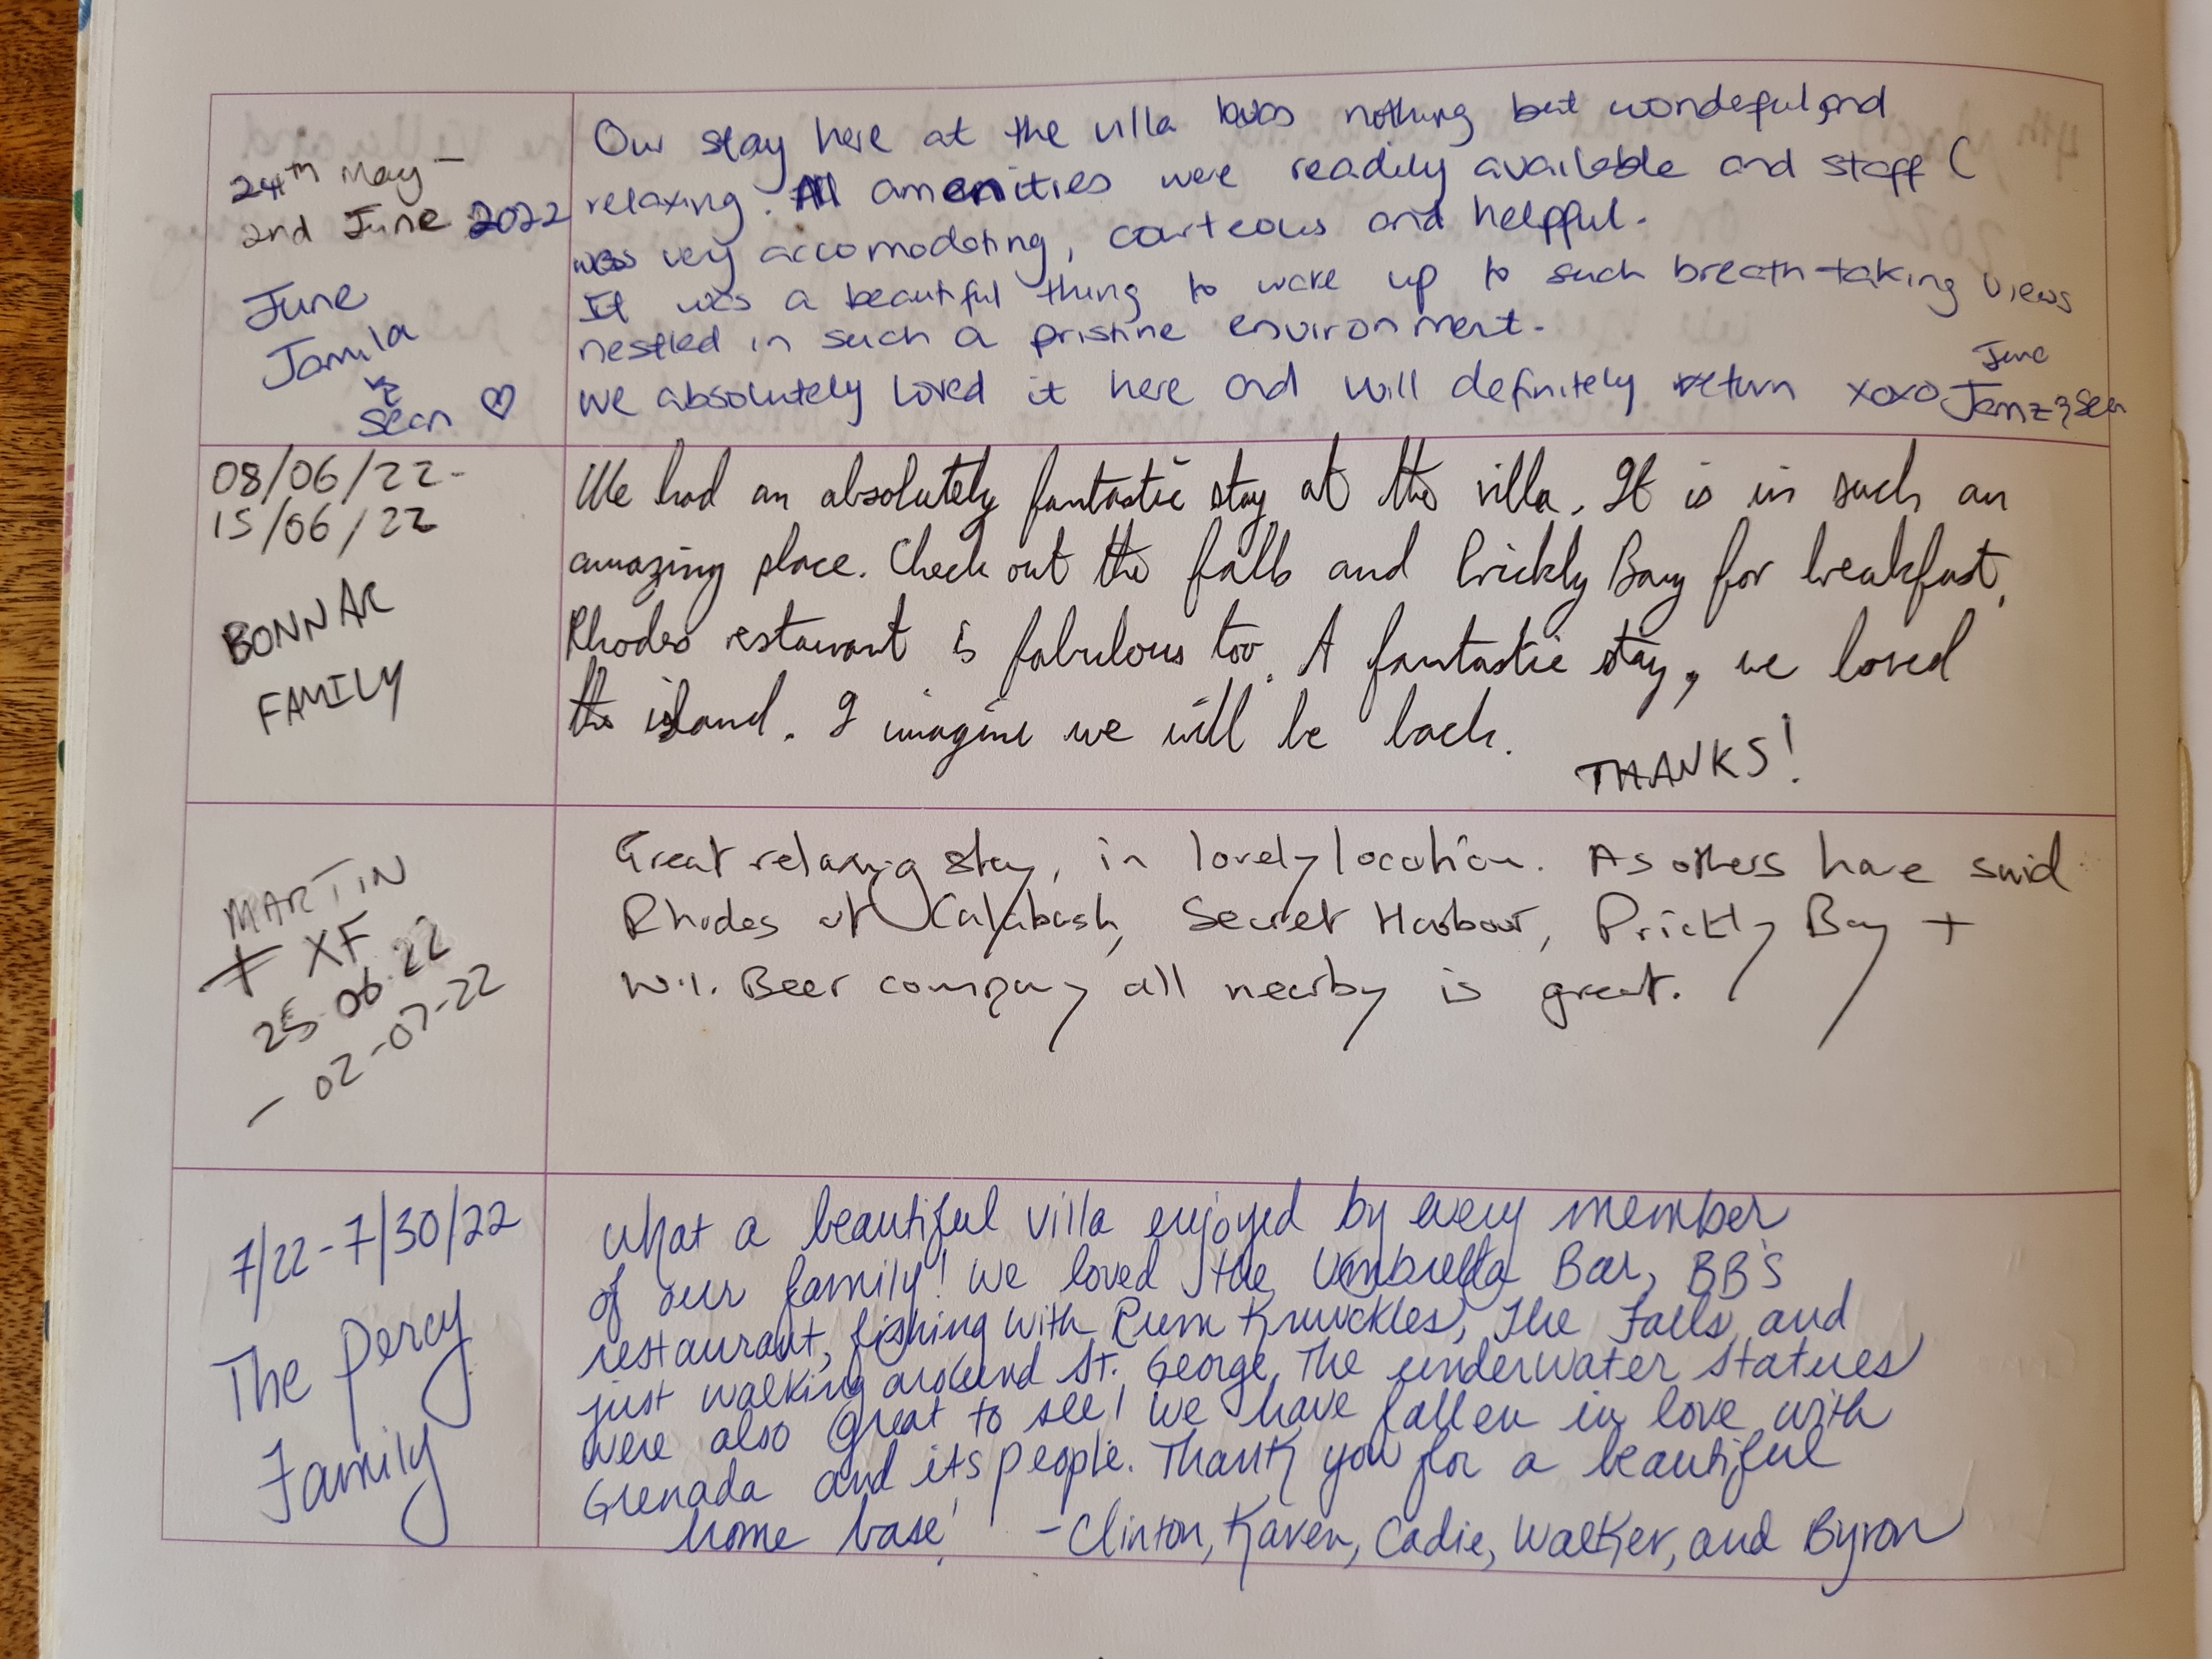 24th May -
2nd June 2022
June
Jamila
&
Sean ♡
Our stay here at the villa was nothing but wondeful and
relaxing. All amenities were readily available and staff (
was very accomodating, courteous and helpful.
It was a beautiful thing to wake up to such breath-taking views
nestled in such a pristine environment.
We absolutely loved it here and will definitely return xoxo June
Jamz & Sean
08/06/22-
15/06/22
BONNAR
FAMILY
We had an absolutely fantastic stay at the villa. It is in such an
amazing place. Check out the falls and Prickly Bay for breakfast.
Rhodes restaurant is fabulous too. A fantastic stay, we loved
the island. I imagine we will be back.
THANKS!
MARTIN
+ XF
25-06-22
- 02-07-22
Great relaxing stay, in lovely location. As others have said
Rhodes at Calabash, Secret Harbour, Prickly Bay +
W.I. Beer company all nearby is great.
7/22-7/30/22
The Percy
Family
What a beautiful villa enjoyed by every member
of our family! We loved the Umbrella Bar, BB's
restaurant, fishing with Rum Knuckles, The Falls and
just walking around St. George. The underwater statues
were also great to see! We have fallen in love with
Grenada and its people. Thank you for a beautiful
home base! -Clinton, Karen, Cadie, Walker, and Byron